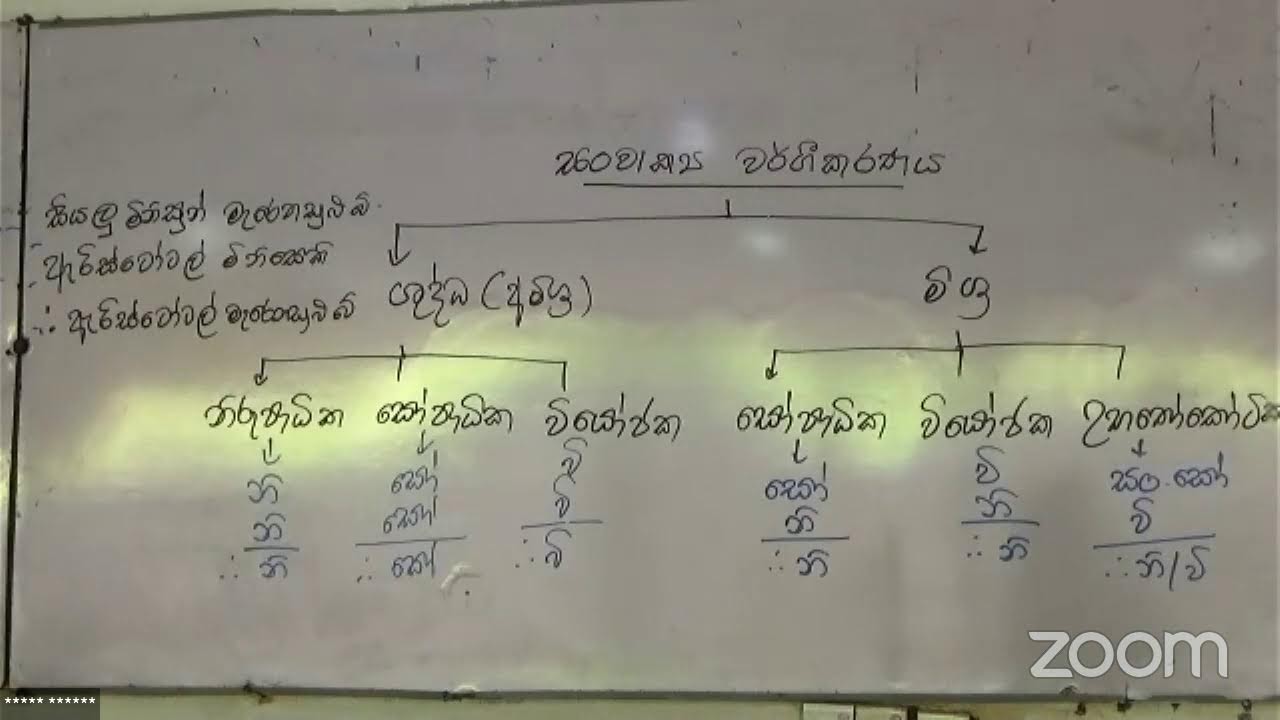 සංවාක්‍ය වර්ගීකරණය
සියලු මිනිසුන් මැරෙනසුළු වි.
ඇරිස්ටෝටල් මිනිසෙකි
∴ ඇරිස්ටෝටල් මැරෙනසුළු වි
ශුද්ධ (අමිශ්‍ර) මිශ්‍ර
නිරුපාධික සෝපාධික වියෝජක සෝපාධික වියෝජක උභතෝකෝටික
නි සෝ වි සෝ වි සං.සෝ
නි සෝ වි නි නි වි
∴ නි ∴ සෝ ∴ වි ∴ නි ∴ නි ∴ නි/වි
zoom
***** ******